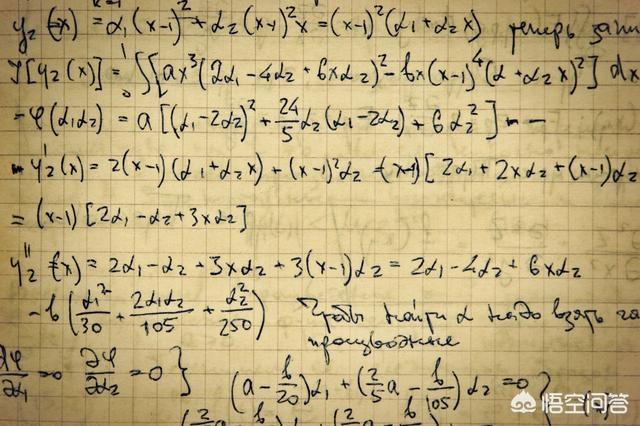 y₂(x) = α₁(x-1)² + α₂(x-1)²x = (x-1)²(α₁+α₂x) теперь запи
J[y₂(x)] = ∫₀¹[ax³(2α₁-4α₂+6xα₂)² - bx(x-1)⁴(α+α₂x)²]dx
= φ(α₁α₂) = a[(α₁-2α₂)² + 24/5 α₂(α₁-2α₂) + 6α₂²] - -
y'₂(x) = 2(x-1)(α₁+α₂x) + (x-1)²α₂ = (x-1)[2α₁+2xα₂+(x-1)α₂
= (x-1)[2α₁-α₂+3xα₂]
y₂''(x) = 2α₁-α₂+3xα₂+3(x-1)α₂ = 2α₁-4α₂+6xα₂
- b(α₁²/30 + 2α₁α₂/105 + α₂²/250) Чтобы найти α надо взять
производные
∂φ/∂α₁ = 0 ∂φ/∂α₂ = 0 } (a - b/20)α₁ + (2/5 a - b/105)α₂ = 0 }
悟空问答